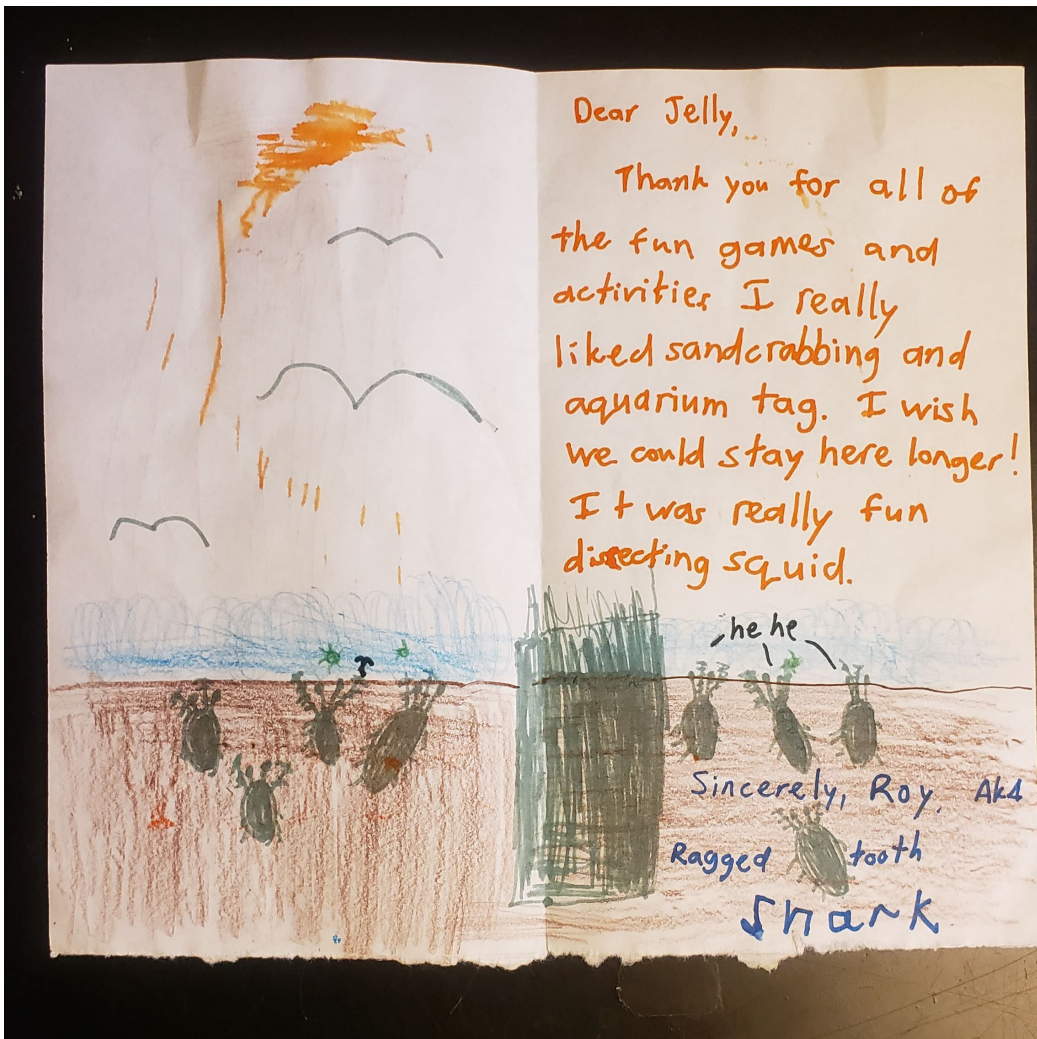 Dear Jelly,
Thank you for all of
the fun games and
activities I really
liked sandcrabbing and
aquarium tag. I wish
we could stay here longer!
It was really fun
dissecting squid.
he he
Sincerely, Roy, AkA
Ragged tooth
Shark